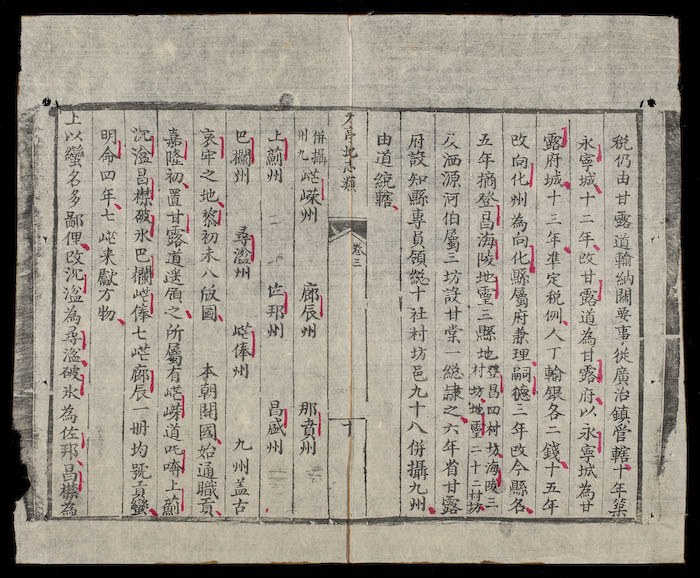 稅仍由甘露道輸納關要事從廣治鎮管轄十年築
永寧城十二年改甘露道為甘露府以永寧城為甘
露府城十三年準定稅例人丁輸銀各二錢十五年
改向化州為向化縣屬府兼理嗣德三年改今縣名
五年摘登昌海陵地靈三縣地登昌四村坊海陵三
村坊地靈二十二村坊
及洒源河伯屬三坊設甘棠一總隸之六年省甘露
府設知縣專員領總十社村坊邑九十八併攝九州
由道統轄
地志類
卷三
十
併攝
九州
芒嶸州 廊辰州 那賁州
上薊州 佐邦州 昌盛州
巴攔州 尋湓州 芒俸州 九州盖古
哀牢之地黎初未入版圖 本朝開國始通職貢
嘉隆初置甘露道遙領之所屬有芒嶸道吒嚌上薊
沉湓昌襟破氷巴攔芒俸七芒廊辰一冊均號貢蠻
明命四年七芒來獻方物
上以蠻名多鄙俚改沉湓為尋湓破氷為佐邦昌襟為